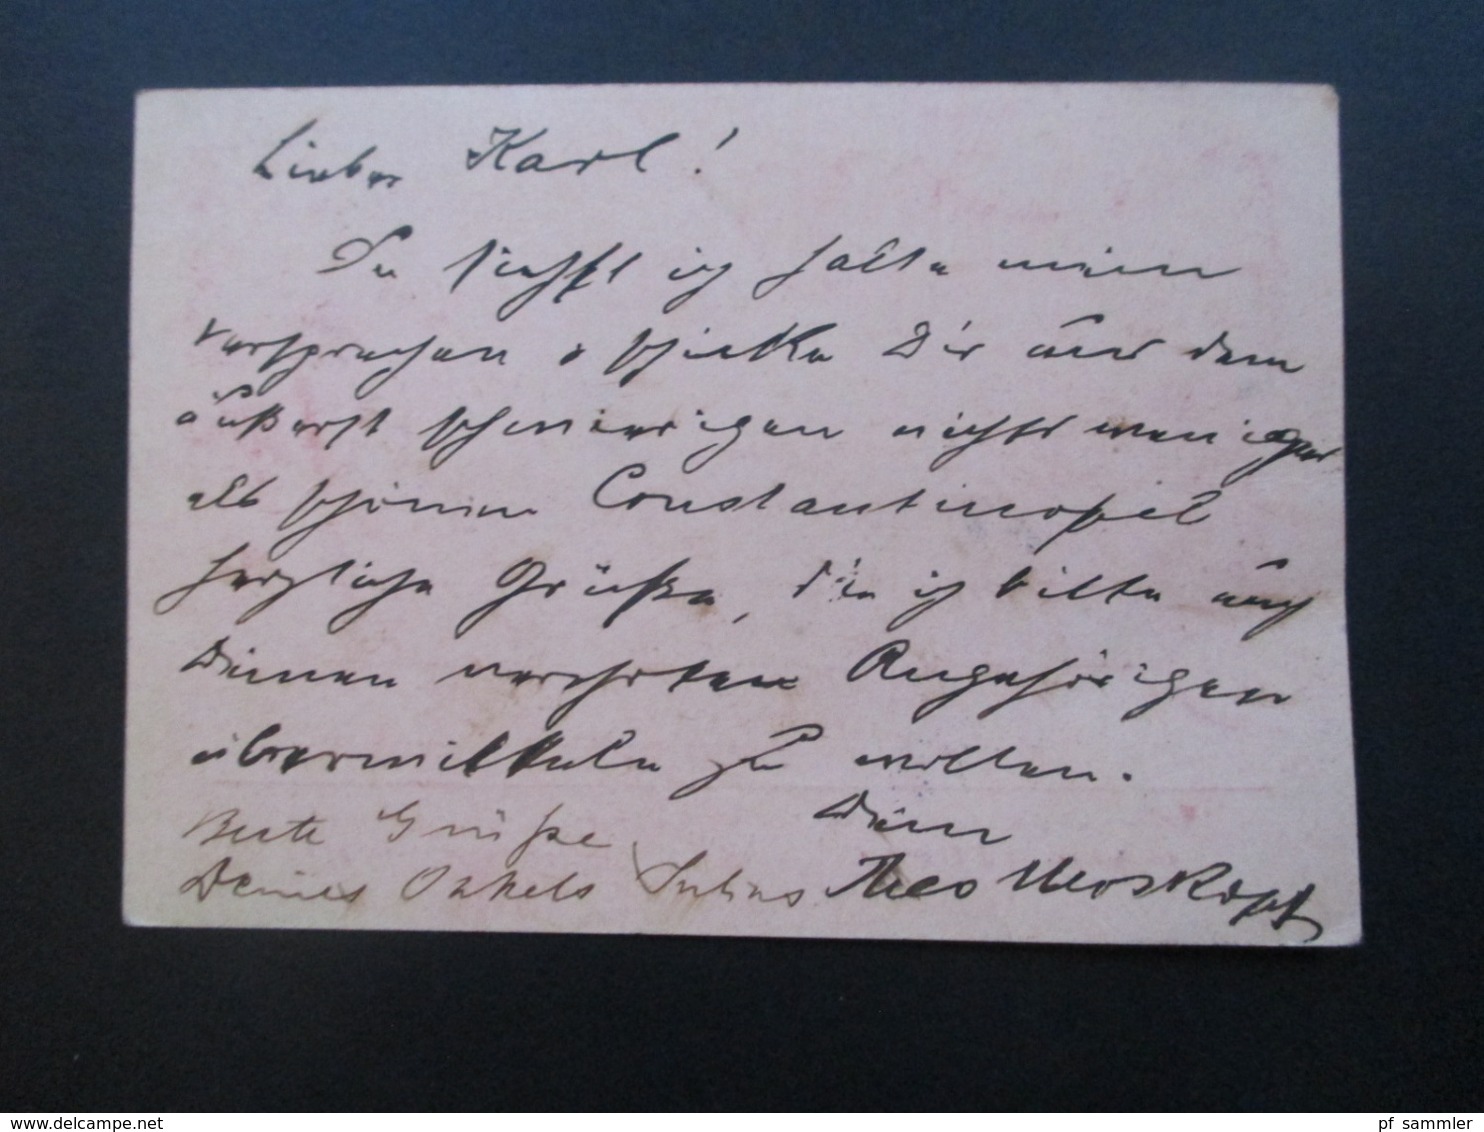 Lieber Karl!
Du siehst ich halte mein
Versprechen u schicke Dir aus dem
äußerst schmierigen nichts weniger
als schönen Constantinopel
herzliche Grüße, die ich bitte auch
Deinen verehrten Angehörigen
übermitteln zu wollen.
Dein
Theo Moskopf
Beste Grüße
Deines Onkels Julius
www.delcampe.net
pf_sammler